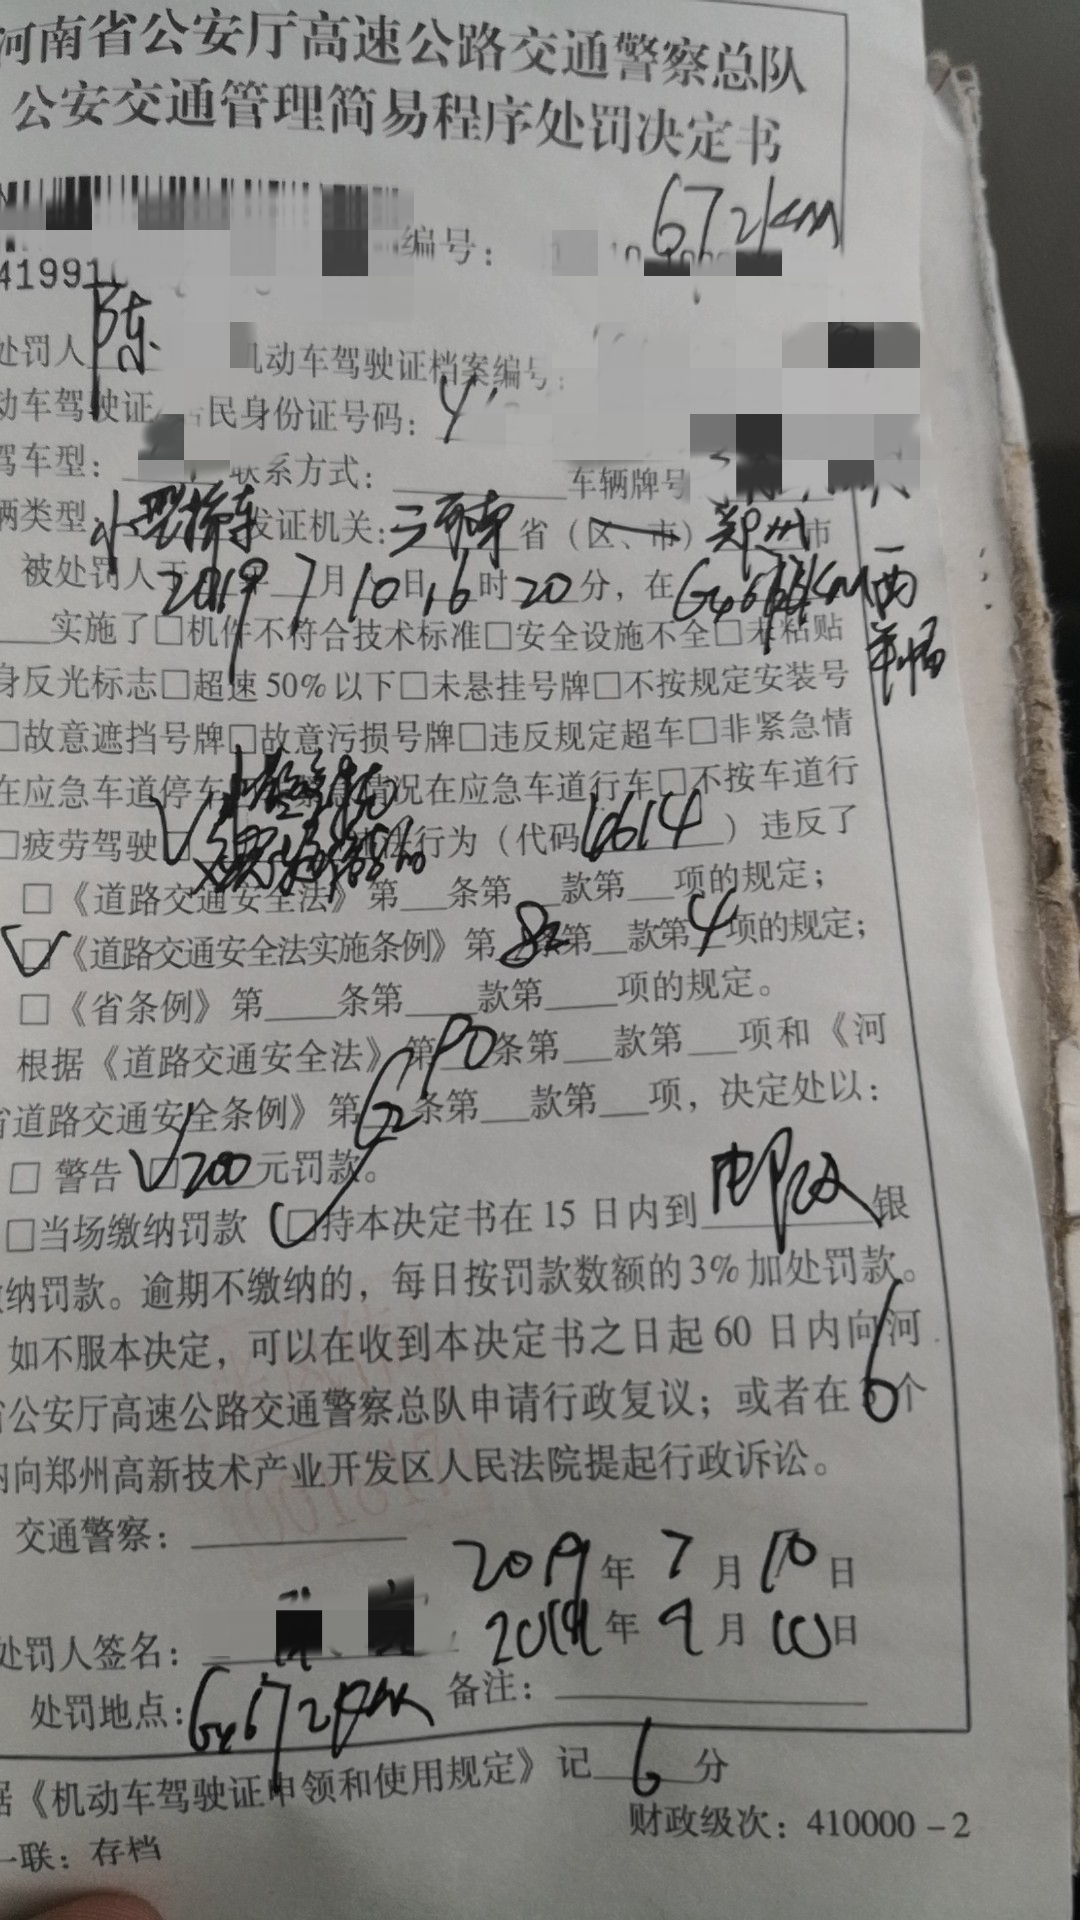 河南省公安厅高速公路交通警察总队
公安交通管理简易程序处罚决定书
672km
编号：
419910
处罚人 陈
机动车驾驶证档案编号：
动车驾驶证 居民身份证号码：4
驾车型： 联系方式： 车辆牌号
辆类型 小型轿车 发证机关： 河南 省（区、市）郑州 市
被处罚人于 2019 年 7 月 10 日 16 时 20 分，在 G4 西
半幅
实施了□机件不符合技术标准□安全设施不全□未粘贴
身反光标志□超速50%以下□未悬挂号牌□不按规定安装号
□故意遮挡号牌□故意污损号牌□违反规定超车□非紧急情
在应急车道停车 紧急情况在应急车道行车□不按车道行
□疲劳驾驶□ 行为（代码 6614 ）违反了
□《道路交通安全法》第 条第 款第 项的规定；
□《道路交通安全法实施条例》第 82 条第 款第 4 项的规定；
□《省条例》第 条第 款第 项的规定。
根据《道路交通安全法》第 90 条第 款第 项和《河
省道路交通安全条例》第 62 条第 款第 项，决定处以：
□ 警告 □ 200 元罚款。
□当场缴纳罚款 □持本决定书在15日内到 邮政 银
缴纳罚款。逾期不缴纳的，每日按罚款数额的3%加处罚款。
如不服本决定，可以在收到本决定书之日起60日内向河
省公安厅高速公路交通警察总队申请行政复议；或者在 6 个
内向郑州高新技术产业开发区人民法院提起行政诉讼。
交通警察：
2019 年 7 月 10 日
处罚人签名： 2019 年 9 月 10 日
处罚地点：G4 672km 备注：
据《机动车驾驶证申领和使用规定》记 6 分
财政级次：410000－2
一联：存档